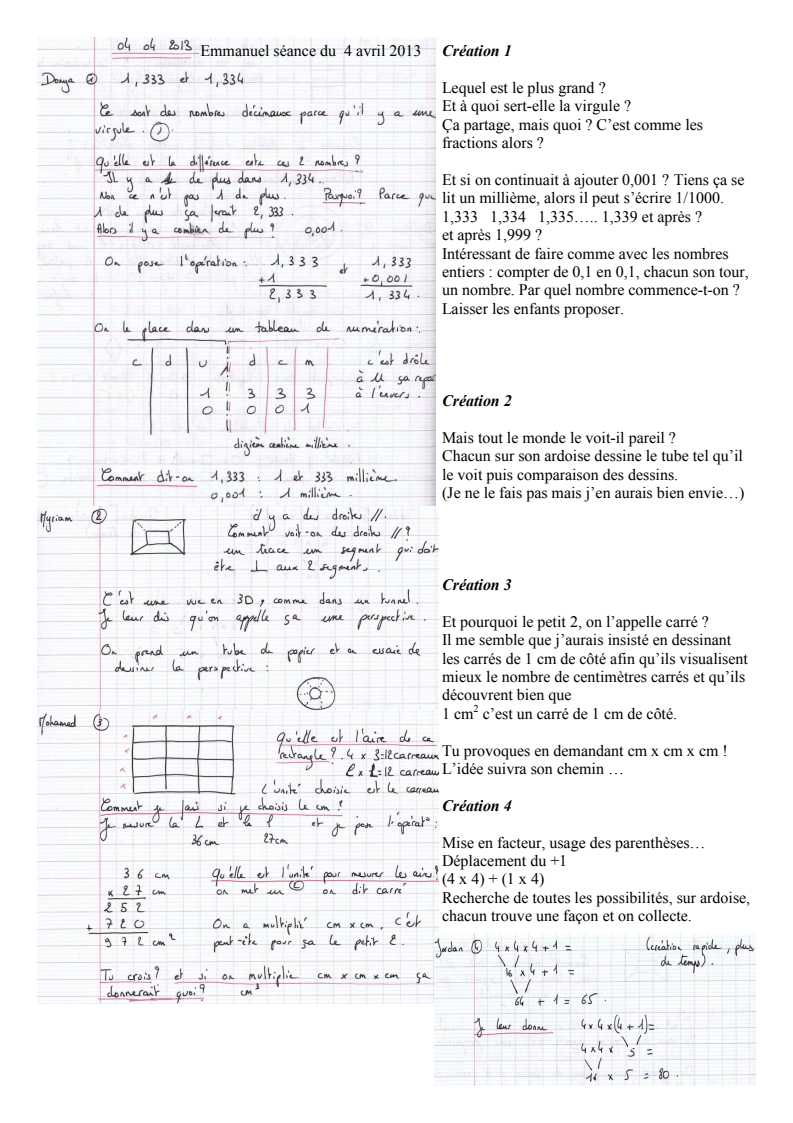 04 04 2013 Emmanuel séance du 4 avril 2013
Donya ① 1,333 et 1,334
Ce sont des nombres décimaux parce qu'il y a une
virgule. (,)
Qu'elle est la différence entre ces 2 nombres ?
Il y a 1 de plus dans 1,334.
Non ce n'est pas 1 de plus. Pourquoi ? Parce que
1 de plus ça ferait 2,333.
Alors il y a combien de plus ? 0,001.
On pose l'opération : 1,333 et 1,333
+1 +0,001
2,333 1,334.
On le place dans un tableau de numération :
c d u , d c m
1 3 3 3
0 0 0 1
c'est drôle
à U ça repar
à l'envers.
dizièm centième millième.
Comment dit-on 1,333 : 1 et 333 millième
0,001 : 1 millième.
Myriam ② il y a des droites //.
Comment voit-on des droites // ?
un trace un segment qui doit
être ⊥ aux 2 segments.
C'est une vue en 3D, comme dans un tunnel.
Je leur dis qu'on appelle ça une perspective.
On prend un tube de papier et on essaie de
dessiner la perspective :
Mohamed ③
Qu'elle est l'aire de ce
rectangle ? . 4 x 3=12 carreaux
L x l=12 carreau
L'unité choisie est le carreau
Comment je fais si je choisis le cm ?
Je mesure la L et la l et je pose l'opérat° :
36 cm 27cm
36 cm
x 27 cm
252
+ 720
972 cm²
Qu'elle est l'unité pour mesurer les aires ?
on met un ② on dit carré
On a multiplié cm x cm, c'est
peut-être pour ça le petit 2.
Tu crois ? et si on multiplie cm x cm x cm ça
donnerait quoi ? cm³
Création 1
Lequel est le plus grand ?
Et à quoi sert-elle la virgule ?
Ça partage, mais quoi ? C'est comme les
fractions alors ?
Et si on continuait à ajouter 0,001 ? Tiens ça se
lit un millième, alors il peut s'écrire 1/1000.
1,333 1,334 1,335….. 1,339 et après ?
et après 1,999 ?
Intéressant de faire comme avec les nombres
entiers : compter de 0,1 en 0,1, chacun son tour,
un nombre. Par quel nombre commence-t-on ?
Laisser les enfants proposer.
Création 2
Mais tout le monde le voit-il pareil ?
Chacun sur son ardoise dessine le tube tel qu'il
le voit puis comparaison des dessins.
(Je ne le fais pas mais j'en aurais bien envie…)
Création 3
Et pourquoi le petit 2, on l'appelle carré ?
Il me semble que j'aurais insisté en dessinant
les carrés de 1 cm de côté afin qu'ils visualisent
mieux le nombre de centimètres carrés et qu'ils
découvrent bien que
1 cm² c'est un carré de 1 cm de côté.
Tu provoques en demandant cm x cm x cm !
L'idée suivra son chemin …
Création 4
Mise en facteur, usage des parenthèses…
Déplacement du +1
(4 x 4) + (1 x 4)
Recherche de toutes les possibilités, sur ardoise,
chacun trouve une façon et on collecte.
Jordan ④ 4 x 4 x 4 + 1 = (création rapide, plus
de temps).
16 x 4 + 1 =
64 + 1 = 65.
Je leur donne 4 x 4 x (4 + 1)=
4 x 4 x 5 =
16 x 5 = 80.